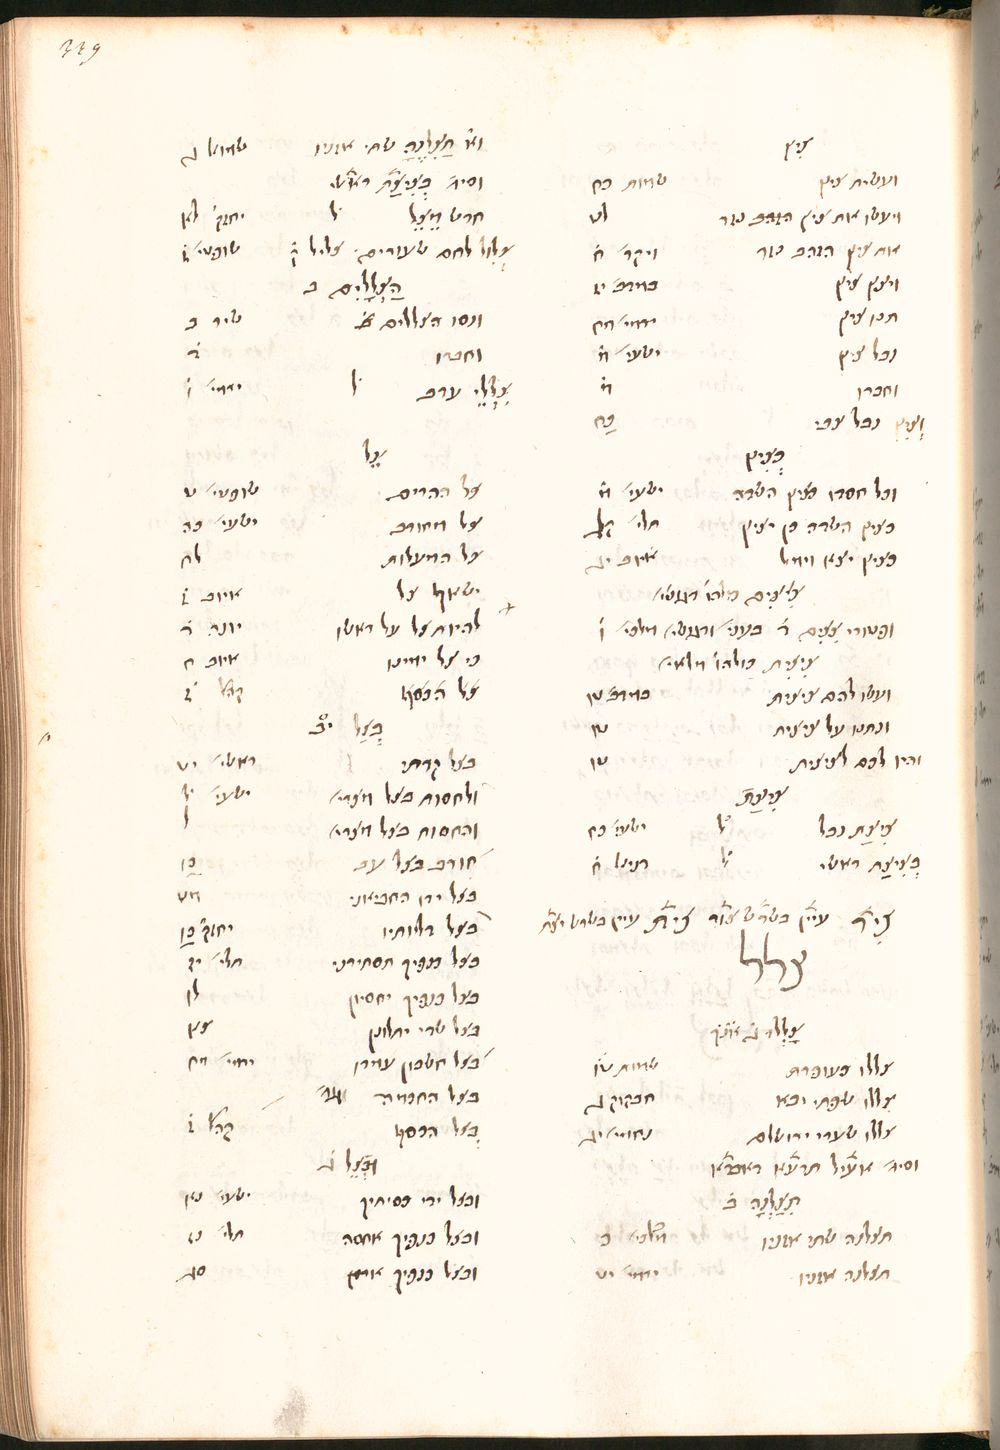 329
צִיץ
ועשית ציץ שמות כח
ויעשו את ציץ הזהב נזר לט
את ציץ הזהב נזר ויקר׳ ח
ויצץ ציץ במדב׳ יז
תנו ציץ ירמי׳ מח
נבל ציץ ישעי׳ מ
וחברו מ
וְצִיץ נבל צבי כח
כְּצִיץ
וכל חסדו כציץ השדה ישעי׳ מ
כציץ השדה כן יציץ תלי׳ קג
כציץ יצא וימל איוב יד
צִיצִים
ופטורי צִצִים מלכי׳ ו
צִיצִת
ועשו להם ציצית במדב׳ טו
ונתנו על ציצית טו
והיו לכם לציצית טו
צִיצַת
צִיצַת נבל ל ישעי׳ כח
בְּצִיצִת ראשי ל
צִיר עיין בשרש צור צית עיין בשרש יצת
צלל
צָלְלוּ ג
צללו כעופרת שמות טו
צָלְלוּ שפתי יבא חבקוק ג
צללו שערי ירושלם נחמי׳ יג
תִּצַלְנָה ב
תצלנה שתי אזניו מלכי׳ כ
תצלנה אזניו ירמי׳ יט
תְּצִלֶּינָה שתי אזניו שמוא׳ ג
וחרש מֵצַל ל יחזק׳ לא
צְלוּל לחם שעורים צליל ק שופטי׳ ז
הַצְּלָלִים ב
ונסו הצללים שיר ב
וחברו ד
צִלְלֵי ערב ל ירמי׳ ו
צֵל
צל ההרים שופטי׳ ט
צל מחורב ישעי׳ כה
צל המעלות לח
ישאף צל איוב ז
להיות צל על ראשו יונה ד
כי צל ימינו איוב ח
צל הכסף קהל ז
בְּצֵל יב
בצל קרתי ראשי׳ יט
ולחסות בצל מצרי׳ ישעי׳ ל
והחסות בצל מצרי׳ ל
חורב בצל עב כה
בצל ידו החביאני מט
בצל דליותיו יחזק׳
בצל כנפיך תסתירני תלי׳ יז
בצל כנפיך יחסיון לו
בצל שדי יתלונן צא
בצל חשבון עמדו ירמי׳ מח
בצל החכמה
בְּצֵל הכסף קהל ז
וּבְצֵל ג
ובצל ידי כסיתיך ישעי׳ נא
ובצל כנפיך אחסה תלי׳ נז
ובצל כנפיך ארנן סג